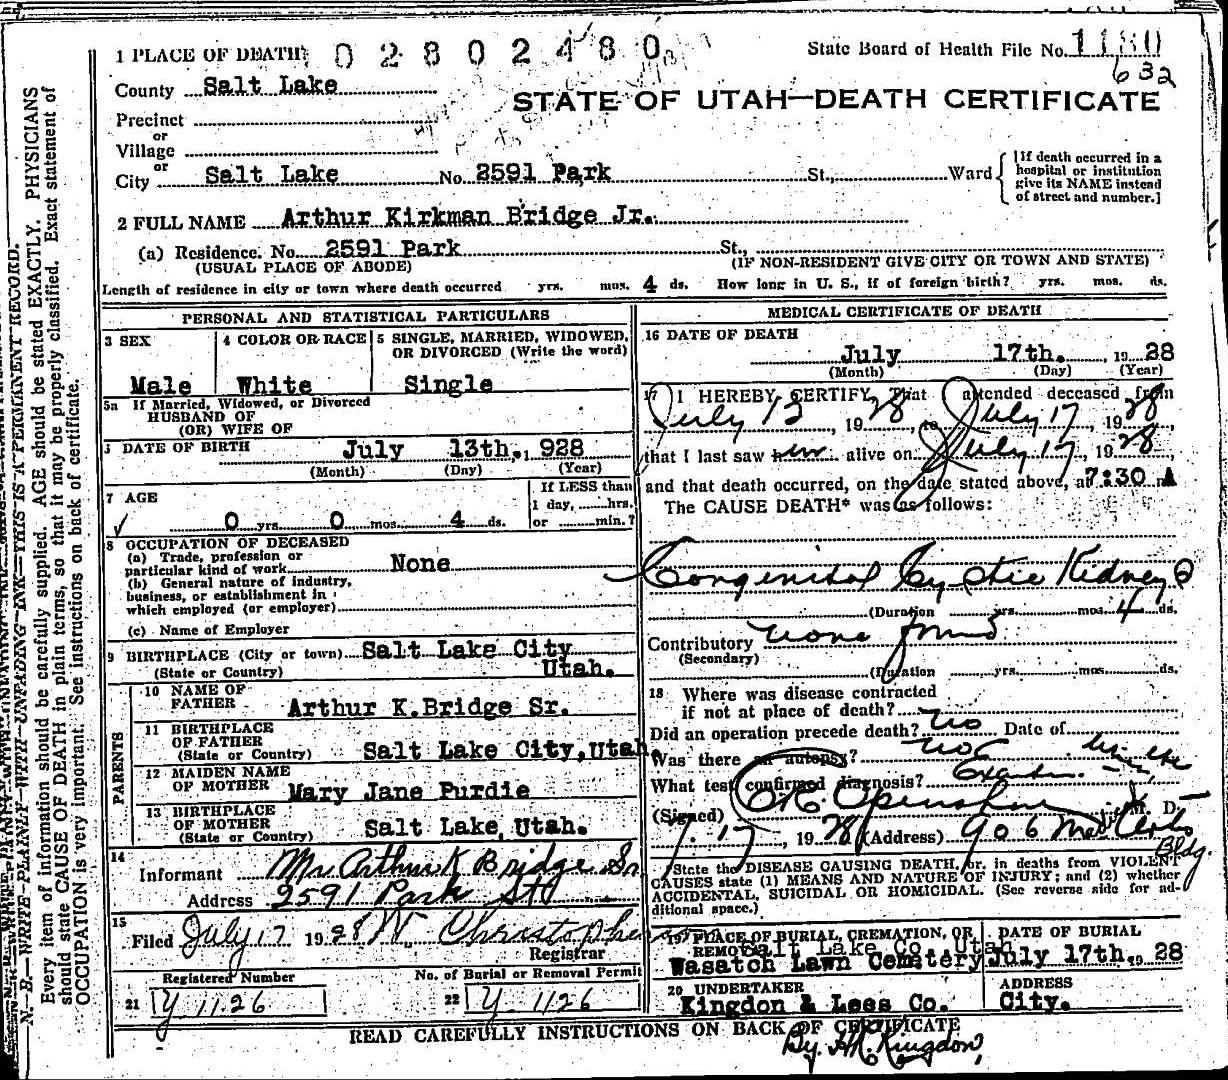 1 PLACE OF DEATH 02802480 State Board of Health File No. 1180
632
County Salt Lake
STATE OF UTAH—DEATH CERTIFICATE
Precinct
or
Village
or
City Salt Lake No. 2591 Park St., Ward
[If death occurred in a hospital or institution give its NAME instead of street and number.]
2 FULL NAME Arthur Kirkman Bridge Jr.
(a) Residence. No. 2591 Park St.,
(USUAL PLACE OF ABODE) (IF NON-RESIDENT GIVE CITY OR TOWN AND STATE)
Length of residence in city or town where death occurred yrs. mos. 4 ds. How long in U. S., if of foreign birth? yrs. mos. ds.
PERSONAL AND STATISTICAL PARTICULARS
3 SEX
Male
4 COLOR OR RACE
White
5 SINGLE, MARRIED, WIDOWED, OR DIVORCED (Write the word)
Single
5a If Married, Widowed, or Divorced
HUSBAND OF
(OR) WIFE OF
DATE OF BIRTH July 13th., 928
(Month) (Day) (Year)
7 AGE
0 yrs. 0 mos. 4 ds.
If LESS than
1 day, hrs.
or min.?
8 OCCUPATION OF DECEASED
(a) Trade, profession or
particular kind of work None
(b) General nature of industry,
business, or establishment in
which employed (or employer)
(c) Name of Employer
9 BIRTHPLACE (City or town) Salt Lake City
(State or Country) Utah.
PARENTS
10 NAME OF
FATHER Arthur K.Bridge Sr.
11 BIRTHPLACE
OF FATHER
(State or Country) Salt Lake City,Utah.
12 MAIDEN NAME
OF MOTHER Mary Jane Purdie
13 BIRTHPLACE
OF MOTHER
(State or Country) Salt Lake, Utah.
14
Informant Mr Arthur K Bridge Sr
Address 2591 Park St
15
Filed July 17 1928 W. Christopherson
Registrar
Registered Number No. of Burial or Removal Permit
21 Y 1126 22 Y 1126
MEDICAL CERTIFICATE OF DEATH
16 DATE OF DEATH
July 17th. , 1928
(Month) (Day) (Year)
17 I HEREBY CERTIFY, That I attended deceased from
July 13, 1928, to July 17, 1928
that I last saw him alive on July 17, 1928,
and that death occurred, on the date stated above, at 7:30 A
The CAUSE DEATH* was as follows:
Congenital Cystic Kidneys
(Duration yrs. mos. 4 ds.
Contributory none found
(Secondary)
(Duration yrs. mos. ds.
18 Where was disease contracted
if not at place of death?
Did an operation precede death? No Date of
Was there an autopsy? No
What test confirmed diagnosis?
(Signed) Openshaw M. D.
7-17, 1928 (Address) 906 Med Arts
Bldg.
State the DISEASE CAUSING DEATH, or, in deaths from VIOLENT
CAUSES state (1) MEANS AND NATURE OF INJURY; and (2) whether
ACCIDENTAL, SUICIDAL OR HOMICIDAL. (See reverse side for ad-
ditional space.)
19 PLACE OF BURIAL, CREMATION, OR
REMOVAL Salt Lake Co. Utah
Wasatch Lawn Cemetery
DATE OF BURIAL
July 17th. 19 28
20 UNDERTAKER
Kingdon & Lees Co.
ADDRESS
City.
READ CAREFULLY INSTRUCTIONS ON BACK OF CERTIFICATE
By. H.K. Kingdon,
N. B.—WRITE PLAINLY WITH UNFADING INK—THIS IS A PERMANENT RECORD.
Every item of information should be carefully supplied. AGE should be stated EXACTLY. PHYSICIANS
should state CAUSE OF DEATH in plain terms, so that it may be properly classified. Exact statement of
OCCUPATION is very important. See instructions on back of certificate.